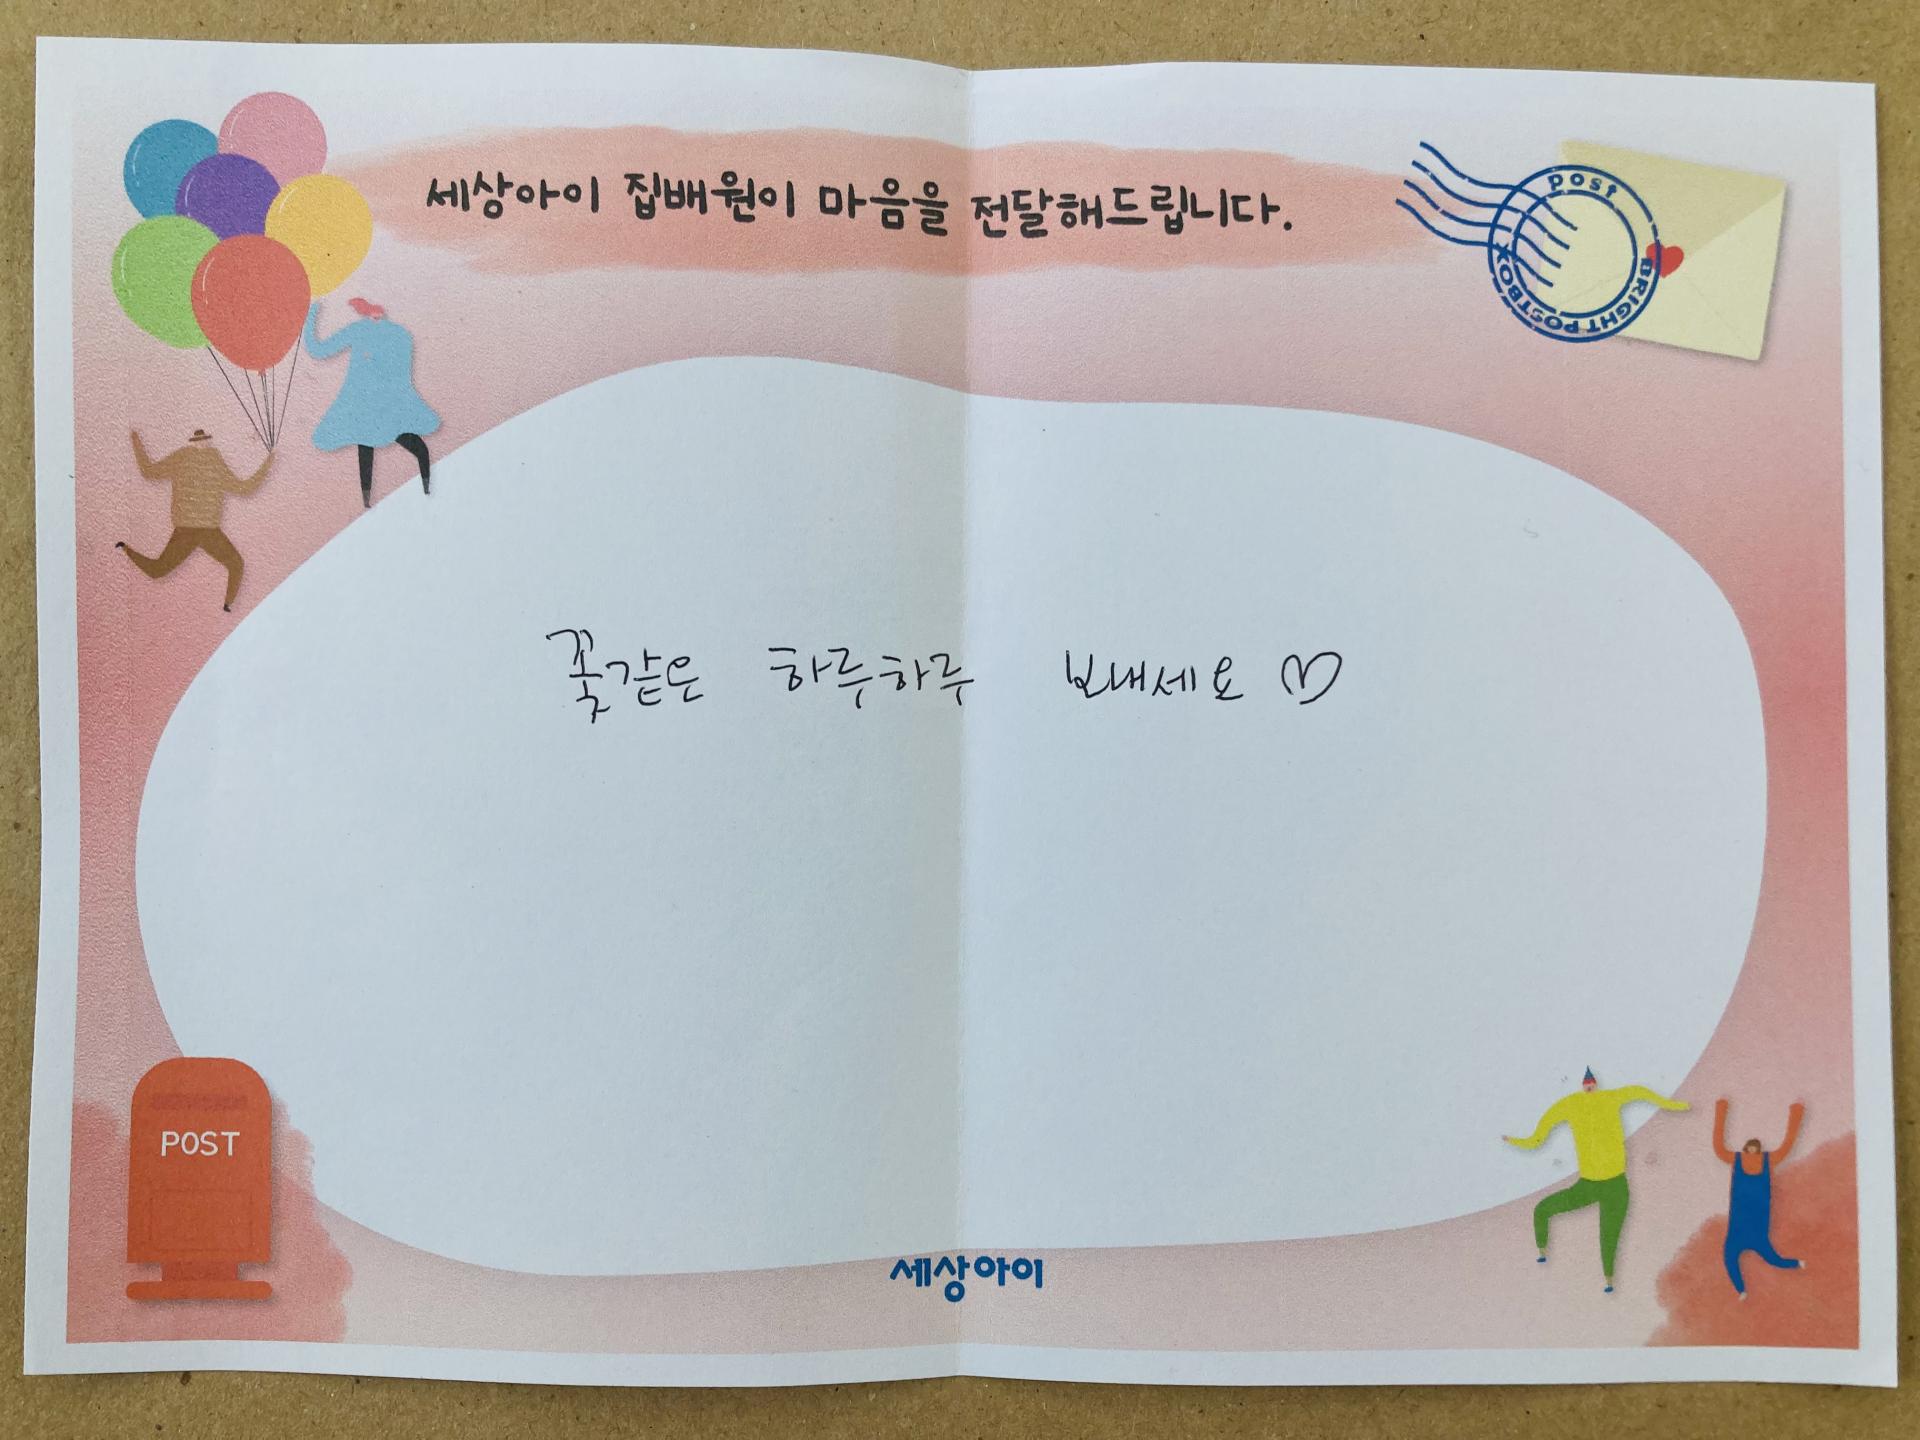 세상아이 집배원이 마음을 전달해드립니다.
post
BRIGHT POSTBOX
꽃같은 하루하루 보내세요♡
POST
세상아이